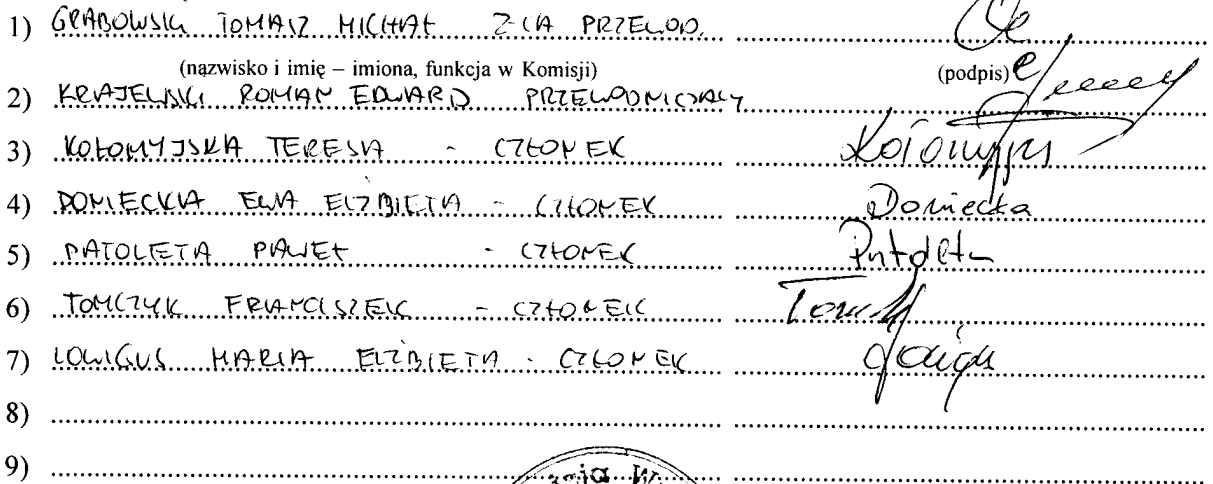 1) GRABOWSKI TOMASZ MICHAŁ Z-CA PRZEWOD.
(nazwisko i imię – imiona, funkcja w Komisji) (podpis)
2) KRAJEWSKI ROMAN EDWARD PRZEWODNICZĄCY
3) KOŁOMYJSKA TERESA - CZŁONEK
4) DONIECKA EWA ELŻBIETA - CZŁONEK Doniecka
5) PATOLETA PAWEŁ - CZŁONEK Patoleta
6) TOMCZYK FRANCISZEK - CZŁONEK
7) LOWIGUS MARIA ELŻBIETA - CZŁONEK
8)
9)